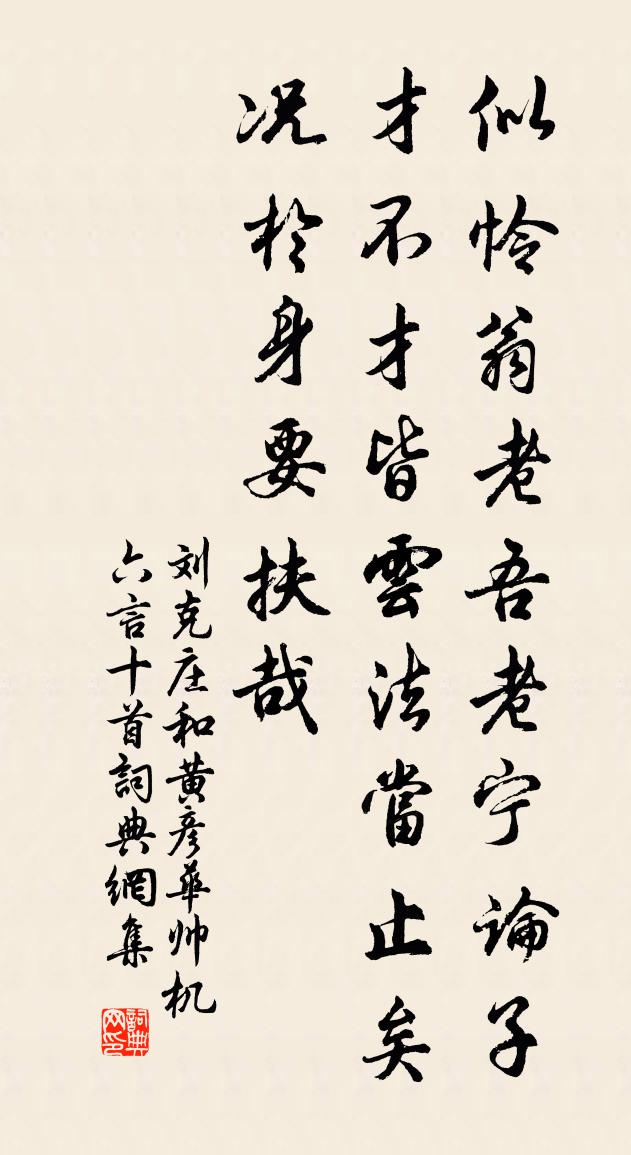 似怜翁老吾老宁論子
才不才皆雲法當止矣
况於身要扶哉
刘克庄和黄彦華帅机
六言十首詞典網集
詞典网印